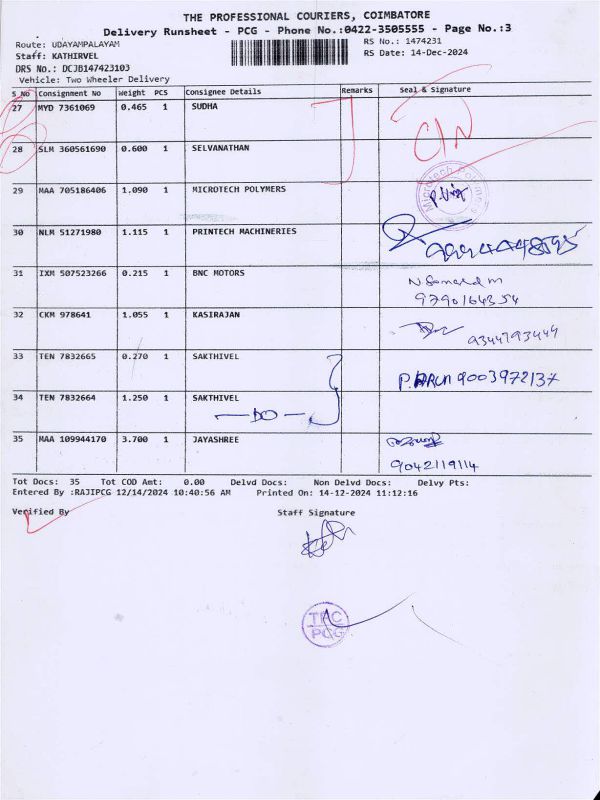 THE PROFESSIONAL COURIERS, COIMBATORE
Delivery Runsheet - PCG - Phone No.:0422-3505555 - Page No.:3
Route: UDAYAMPALAYAM RS No.: 1474231
Staff: KATHIRVEL RS Date: 14-Dec-2024
DRS No.: DCJB147423103
Vehicle: Two Wheeler Delivery
S No Consignment No Weight PCS Consignee Details Remarks Seal & Signature
27 MYD 7361069 0.465 1 SUDHA
C/N
28 SLM 360561690 0.600 1 SELVANATHAN
29 MAA 705186406 1.090 1 MICROTECH POLYMERS Microtech Polymers
30 NLM 51271980 1.115 1 PRINTECH MACHINERIES
31 IXM 507523266 0.215 1 BNC MOTORS
9790164354
32 CKM 978641 1.055 1 KASIRAJAN
9344793449
33 TEN 7832665 0.270 1 SAKTHIVEL
P. ARUN 9003972137
34 TEN 7832664 1.250 1 SAKTHIVEL
DO
35 MAA 109944170 3.700 1 JAYASHREE
9042119114
Tot Docs: 35 Tot COD Amt: 0.00 Delvd Docs: Non Delvd Docs: Delvy Pts:
Entered By :RAJIPCG 12/14/2024 10:40:56 AM Printed On: 14-12-2024 11:12:16
Verified By Staff Signature
TPC
PCG